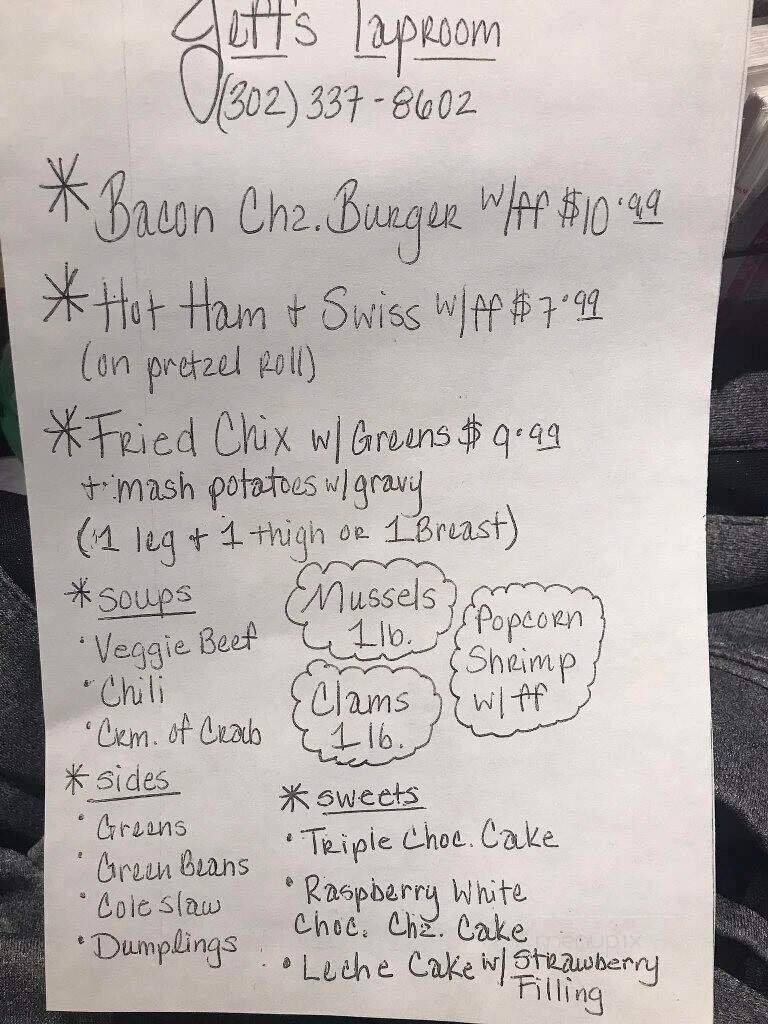 Jeff's Taproom
(302) 337-8602
* Bacon Chz. Burger w/ff $10.99
* Hot Ham + Swiss w/ff $7.99
(on pretzel roll)
* Fried Chix w/ Greens $9.99
+ mash potatoes w/gravy
(1 leg + 1 thigh or 1 Breast)
* soups
• Veggie Beef
• Chili
• Crm. of Crab
Mussels
1 lb.
Clams
1 lb.
Popcorn
Shrimp
w/ ff
* sides
• Greens
• Green Beans
• Cole slaw
• Dumplings
* sweets
• Triple Choc. Cake
• Raspberry White
Choc. Chz. Cake
• Leche Cake w/ Strawberry
Filling
menupix